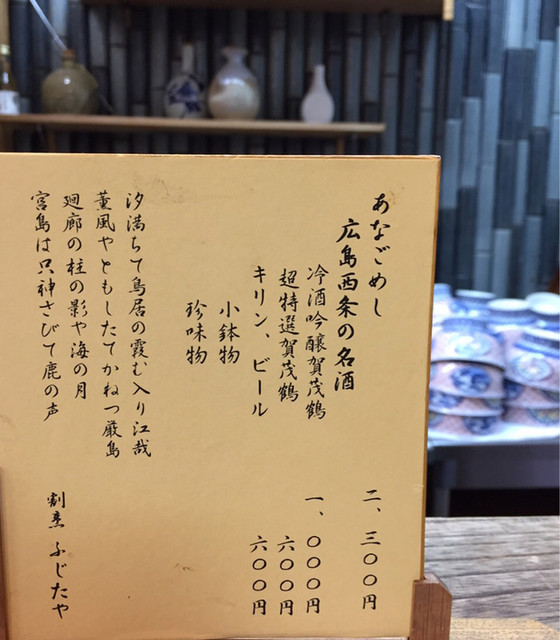 あなごめし 二、三〇〇円
広島西条の名酒
冷酒吟醸賀茂鶴 一、〇〇〇円
超特選賀茂鶴 六〇〇円
キリン、ビール 六〇〇円
小鉢物
珍味物
汐満ちて鳥居の霞む入り江哉
薫風やともしたてかねつ厳島
廻廊の柱の影や海の月
宮島は只神さびて鹿の声
割烹 ふじたや